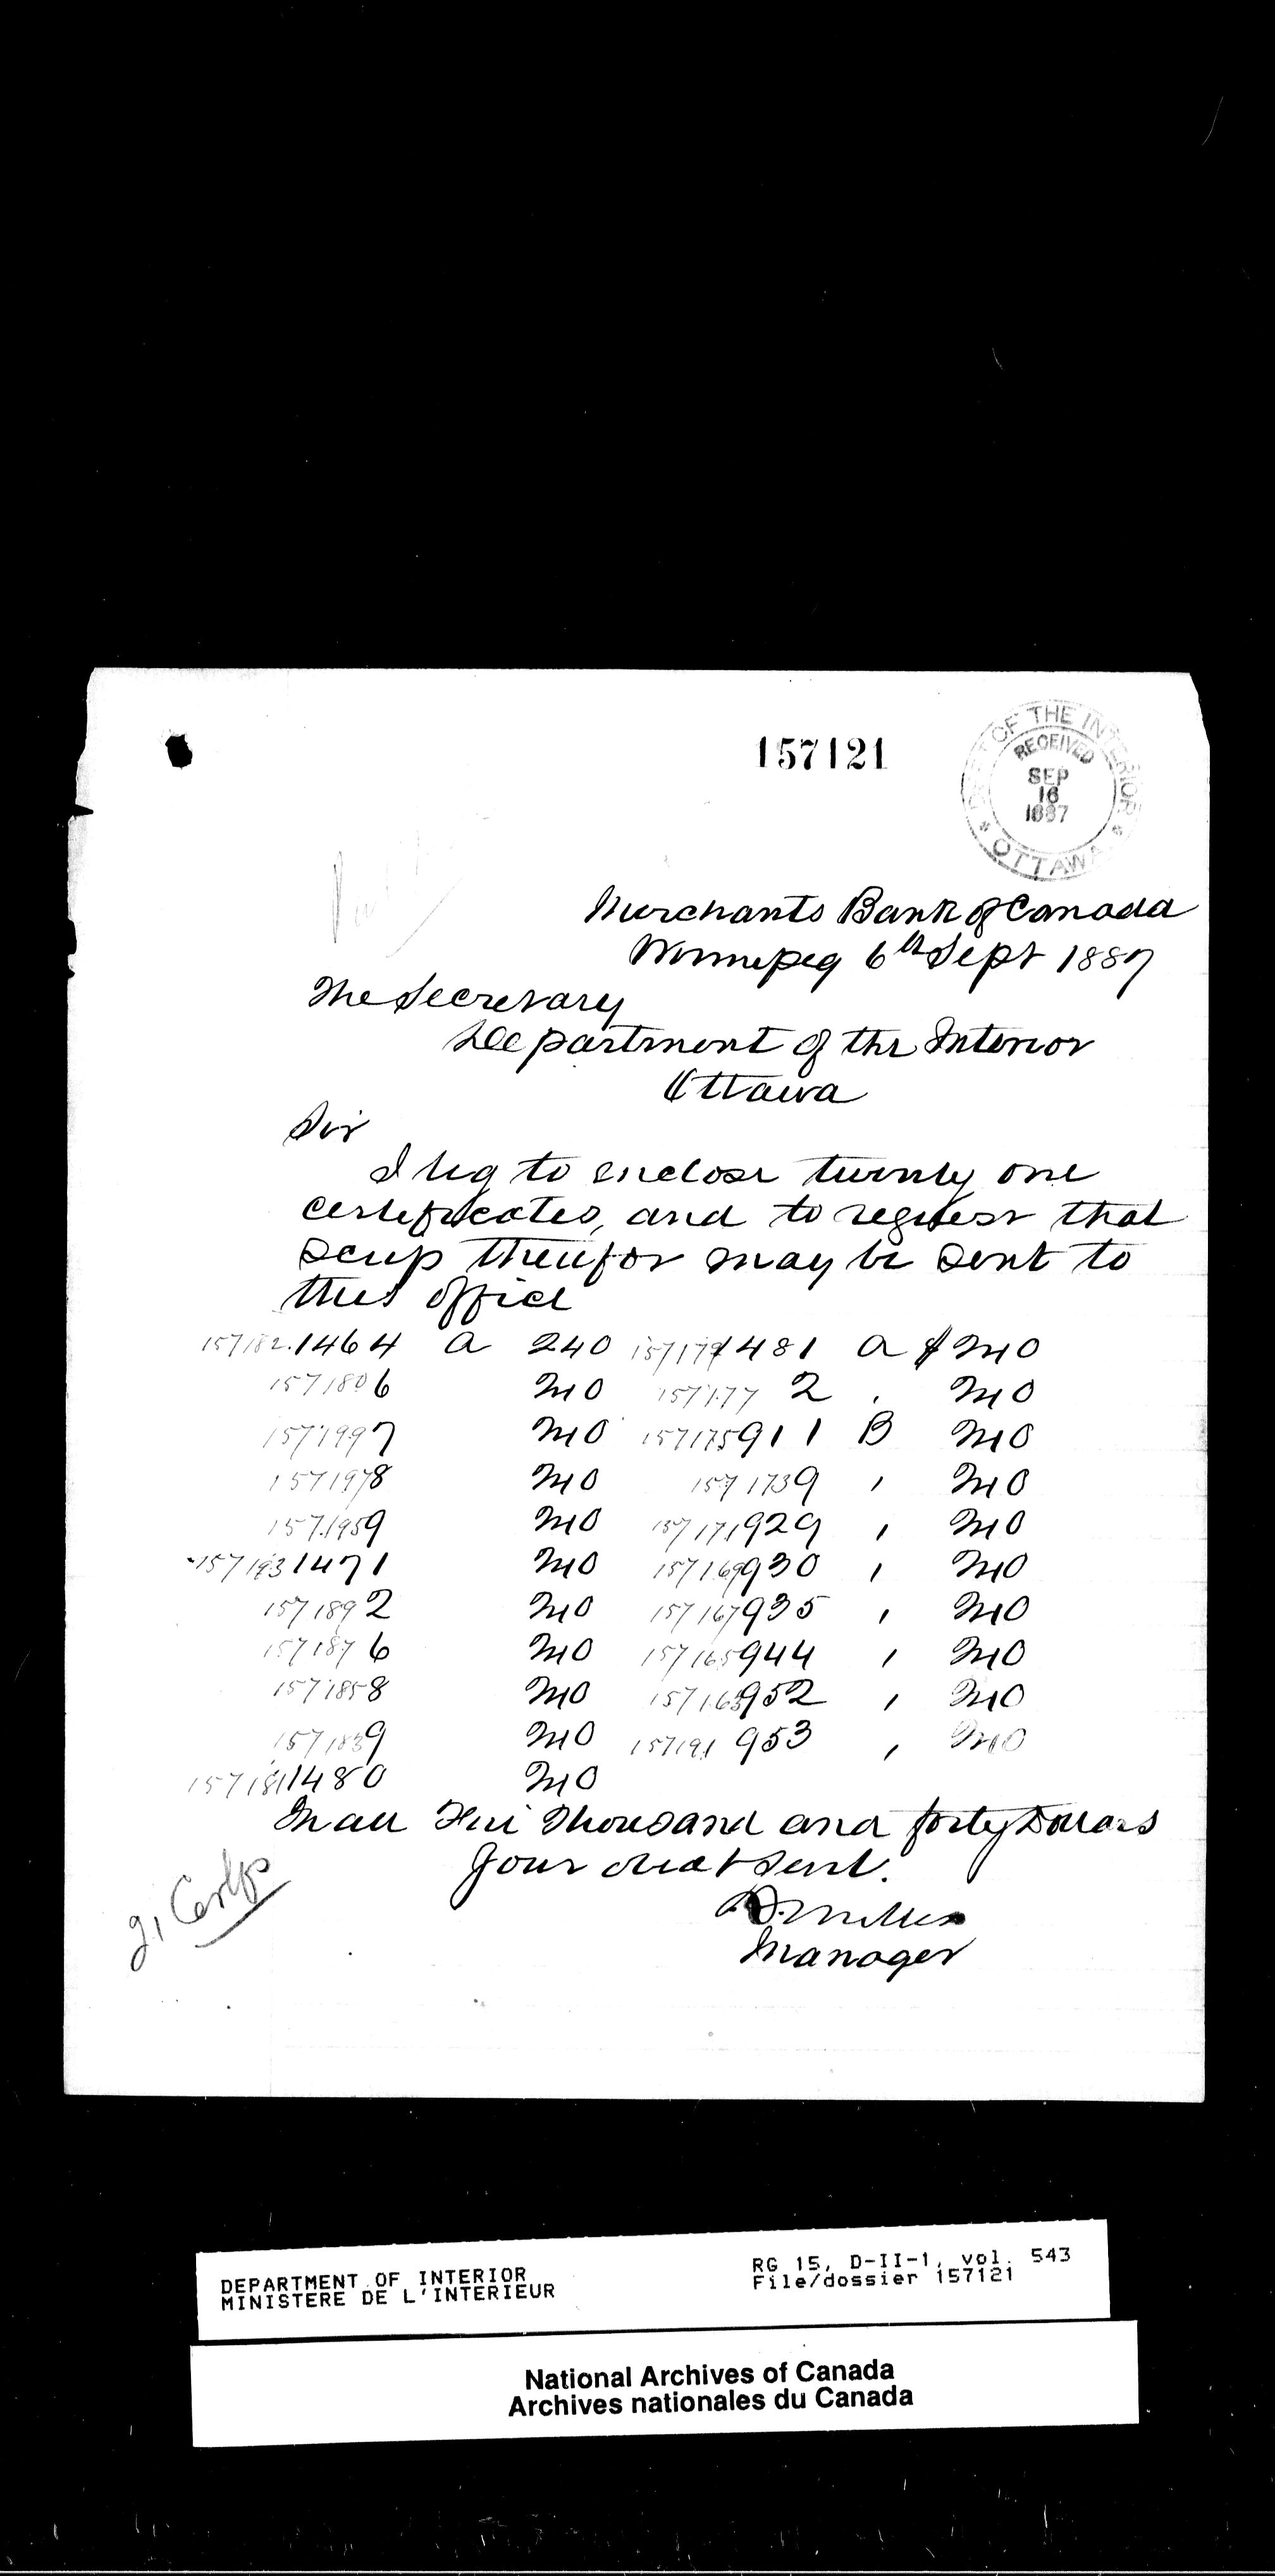 157121
DEPT OF THE INTERIOR
RECEIVED
SEP
16
1887
* OTTAWA *
Merchants Bank of Canada
Winnipeg 6th Sept 1887
The Secretary
Department of the Interior
Ottawa
Sir
I beg to enclose twenty one
certificates, and to request that
scrip therefor may be sent to
this office
157182 1464 A 240 157179 1481 A $ 240
157180 6 240 157177 2 , 240
157199 7 240 157175 911 B 240
157197 8 240 157173 9 , 240
157195 9 240 157171 929 , 240
157193 1471 240 157169 930 , 240
157189 2 240 157167 935 , 240
157187 6 240 157165 944 , 240
157185 8 240 157163 952 , 240
157183 9 240 157191 953 , 240
157181 1480 240
In all Five Thousand and forty Dollars
Your obedt Servt.
Miller
Manager
21 Certfs
DEPARTMENT OF INTERIOR
MINISTERE DE L'INTERIEUR
RG 15, D-II-1, vol. 543
File/dossier 157121
National Archives of Canada
Archives nationales du Canada